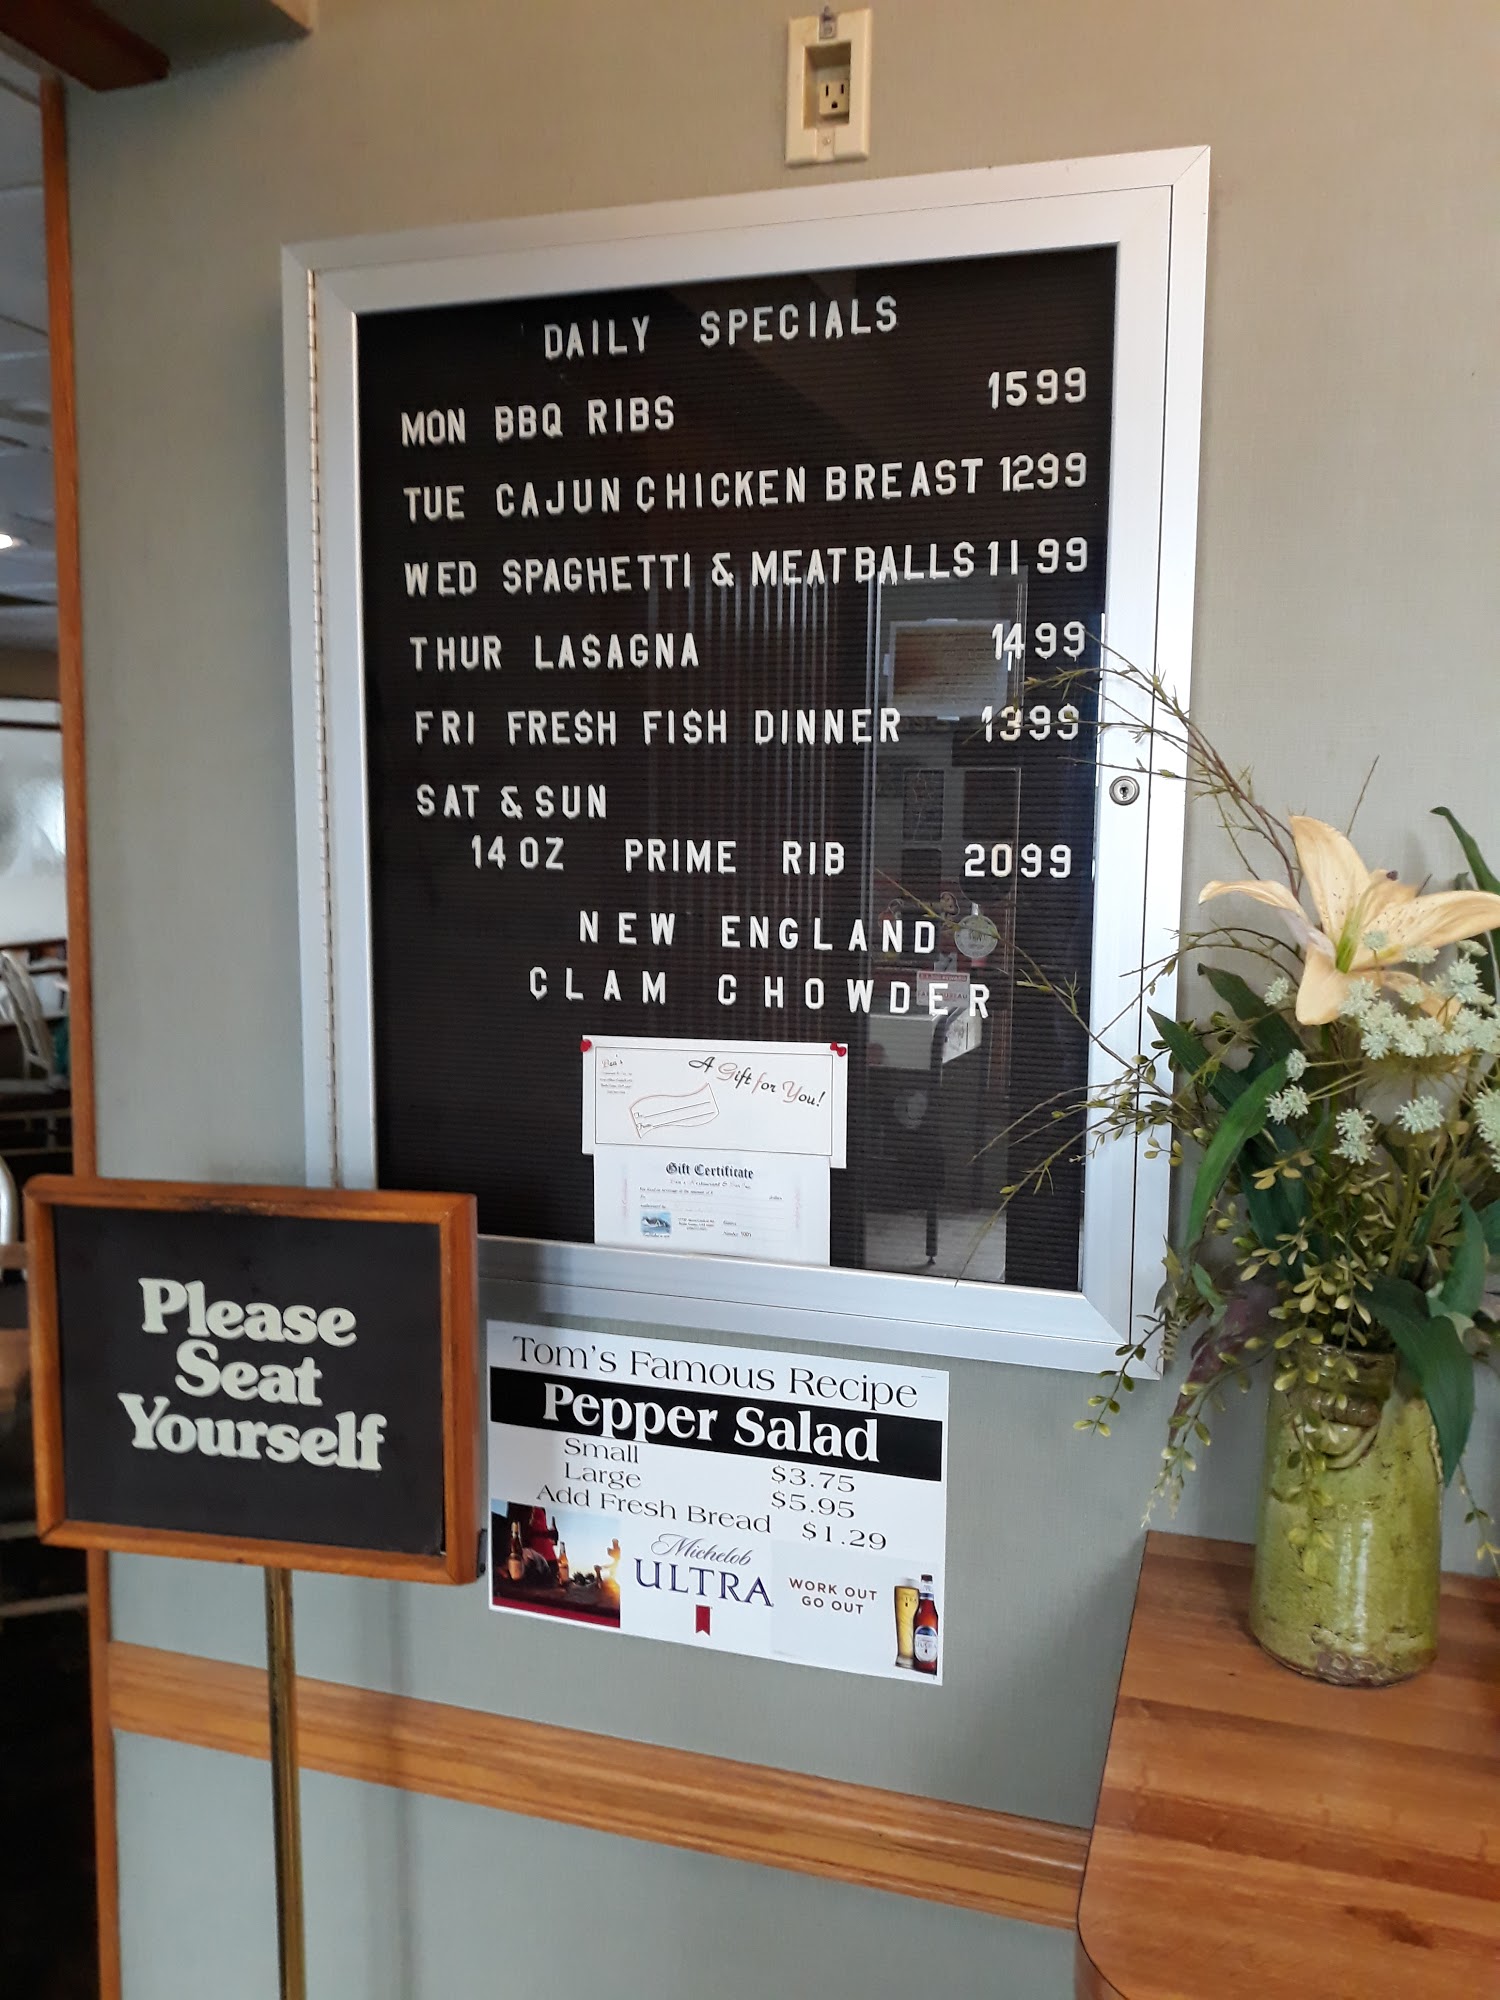 DAILY SPECIALS
MON BBQ RIBS 1599
TUE CAJUN CHICKEN BREAST 1299
WED SPAGHETTI & MEATBALLS 11 99
THUR LASAGNA 1499
FRI FRESH FISH DINNER 1399
SAT & SUN
14 OZ PRIME RIB 2099
NEW ENGLAND
CLAM CHOWDER
A Gift for You!
Gift Certificate
Please
Seat
Yourself
Tom's Famous Recipe
Pepper Salad
Small $3.75
Large $5.95
Add Fresh Bread $1.29
Michelob
ULTRA
WORK OUT
GO OUT